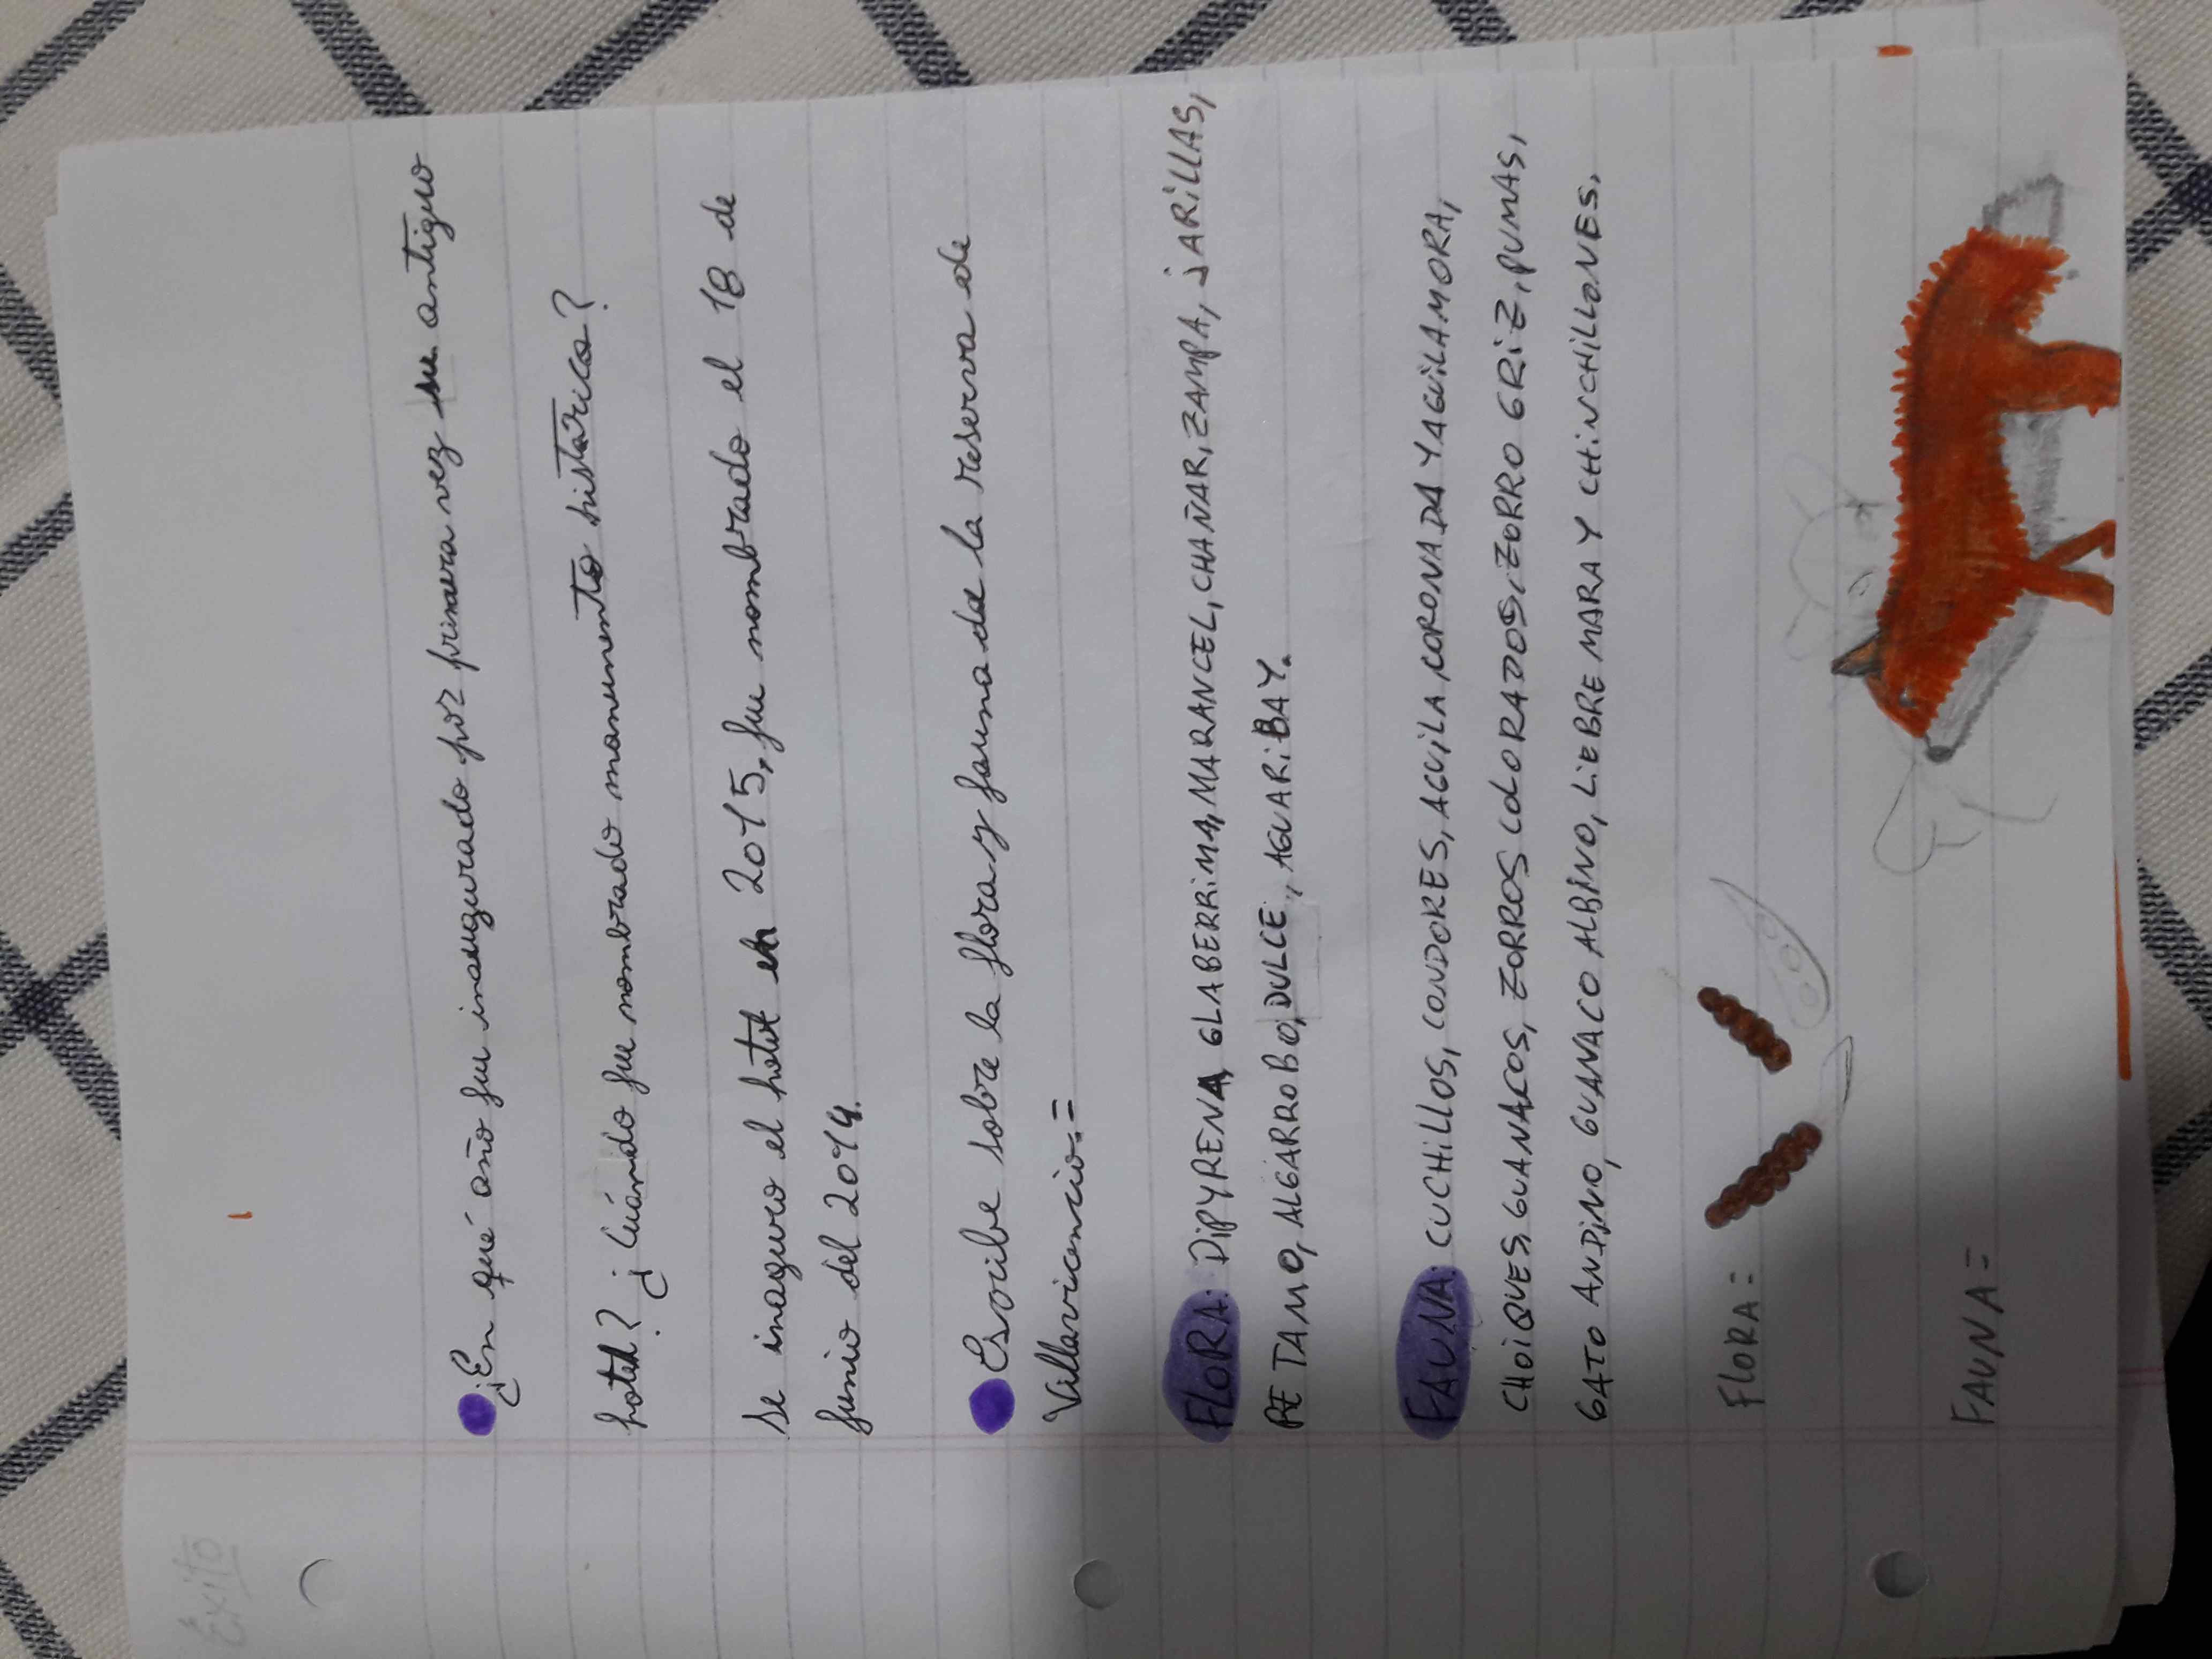 Éxito
¿En qué año fue inaugurado por primera vez su antiguo
hotel? ¿Cuándo fue nombrado monumento histórico?
se inaguro el hotel en 2015, fue nombrado el 18 de
junio del 2014.
Escribe sobre la flora y fauna de la reserva de
Villavicencio.=
FLORA: DIPYRENA, GLABERRIMA, MARANCEL, CHAÑAR, ZAMPA, jARILLAS,
RETAMO, ALGARROBO, DULCE, AGUARIBAY.
FAUNA: CUCHILLOS, CONDORES, AGUILA CORONADA Y AGUILA MORA,
CHOIQUES, GUANACOS, ZORROS COLORADOS, ZORRO GRIZ, PUMAS,
GATO ANDINO, GUANACO ALBINO, LIEBRE MARA Y CHINCHILLONES.
FLORA=
FAUNA=